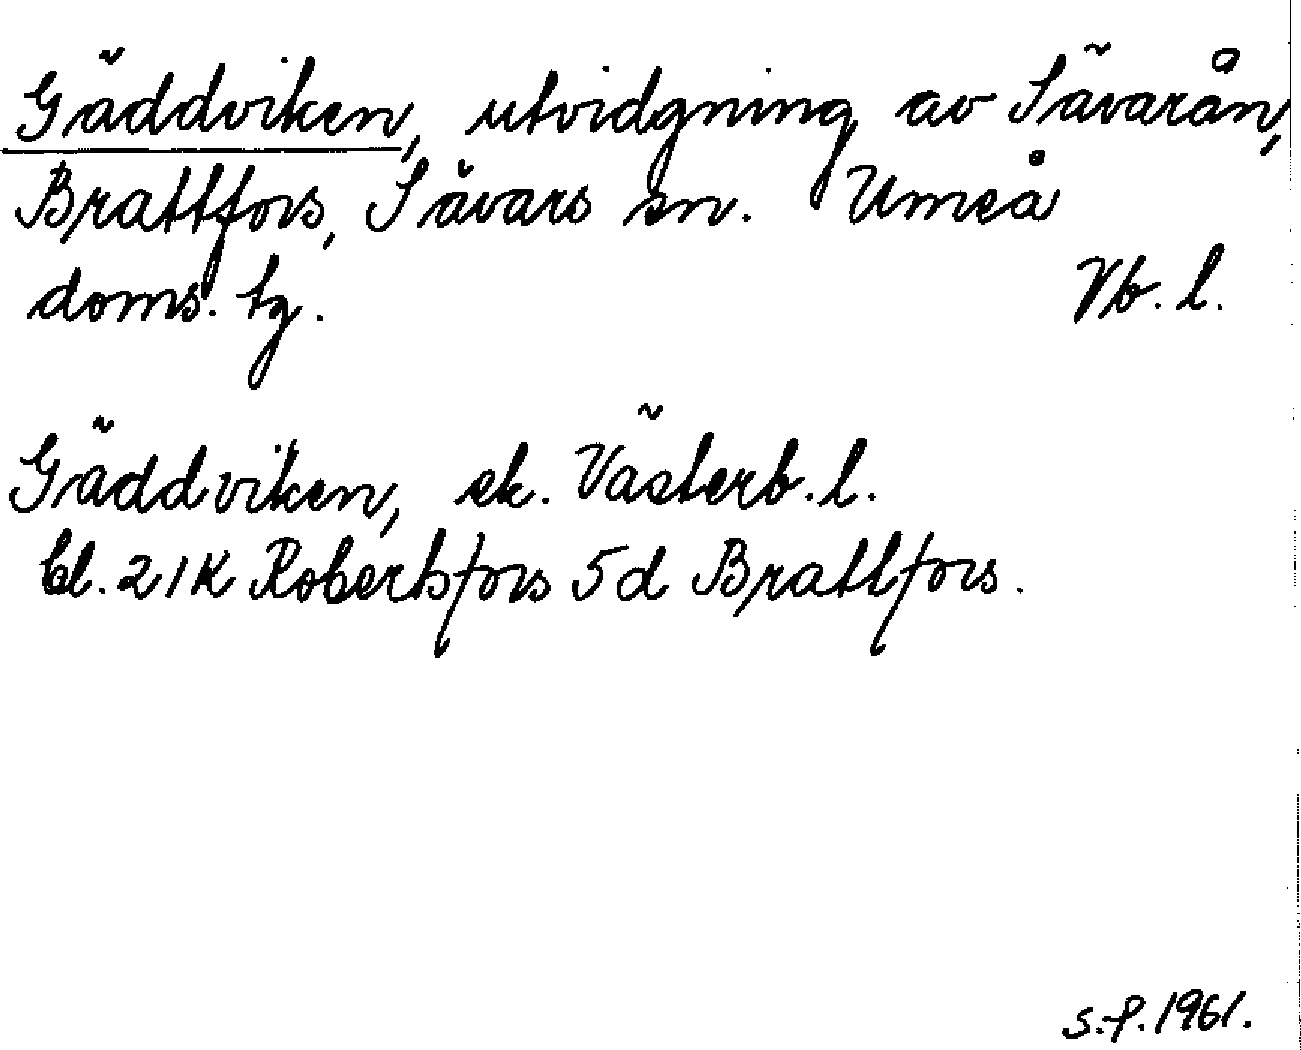 Gäddviken, utvidgning av Sävarån,
Brattfors, Sävars sn. Umeå
doms. tg. Vb. l.
Gäddviken, ek. Västerb. l.
bl. 21K Robertsfors 5d Brattfors.
S.-P. 1961.